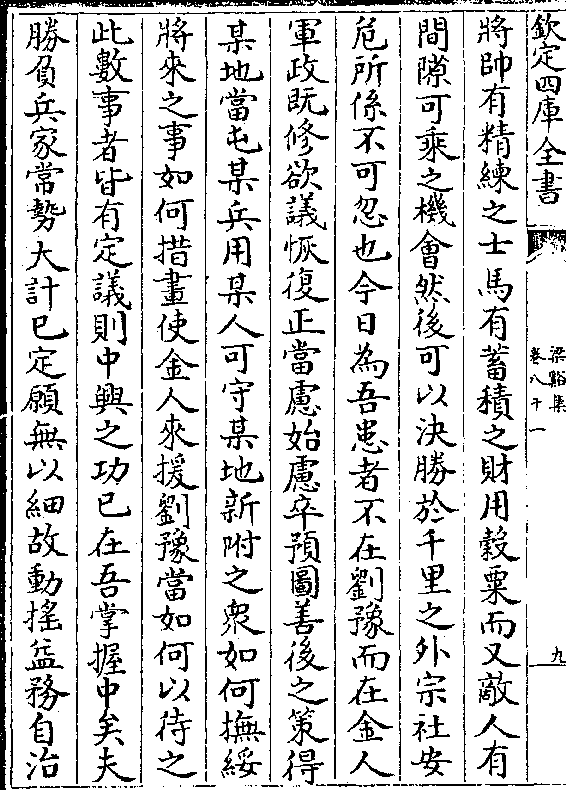 欽定四庫全書
梁谿集
卷八十一
九
將帥有精練之士馬有蓄積之財用穀粟而又敵人有
間隙可乘之機會然後可以決勝於千里之外宗社安
危所係不可忽也今日為吾患者不在劉豫而在金人
軍政既修欲議恢復正當慮始慮卒預圖善後之策得
某地當屯某兵用某人可守某地新附之衆如何撫綏
將來之事如何措畫使金人來援劉豫當如何以待之
此數事者皆有定議則中興之功已在吾掌握中矣夫
勝負兵家常勢大計已定願無以細故動揺益務自治